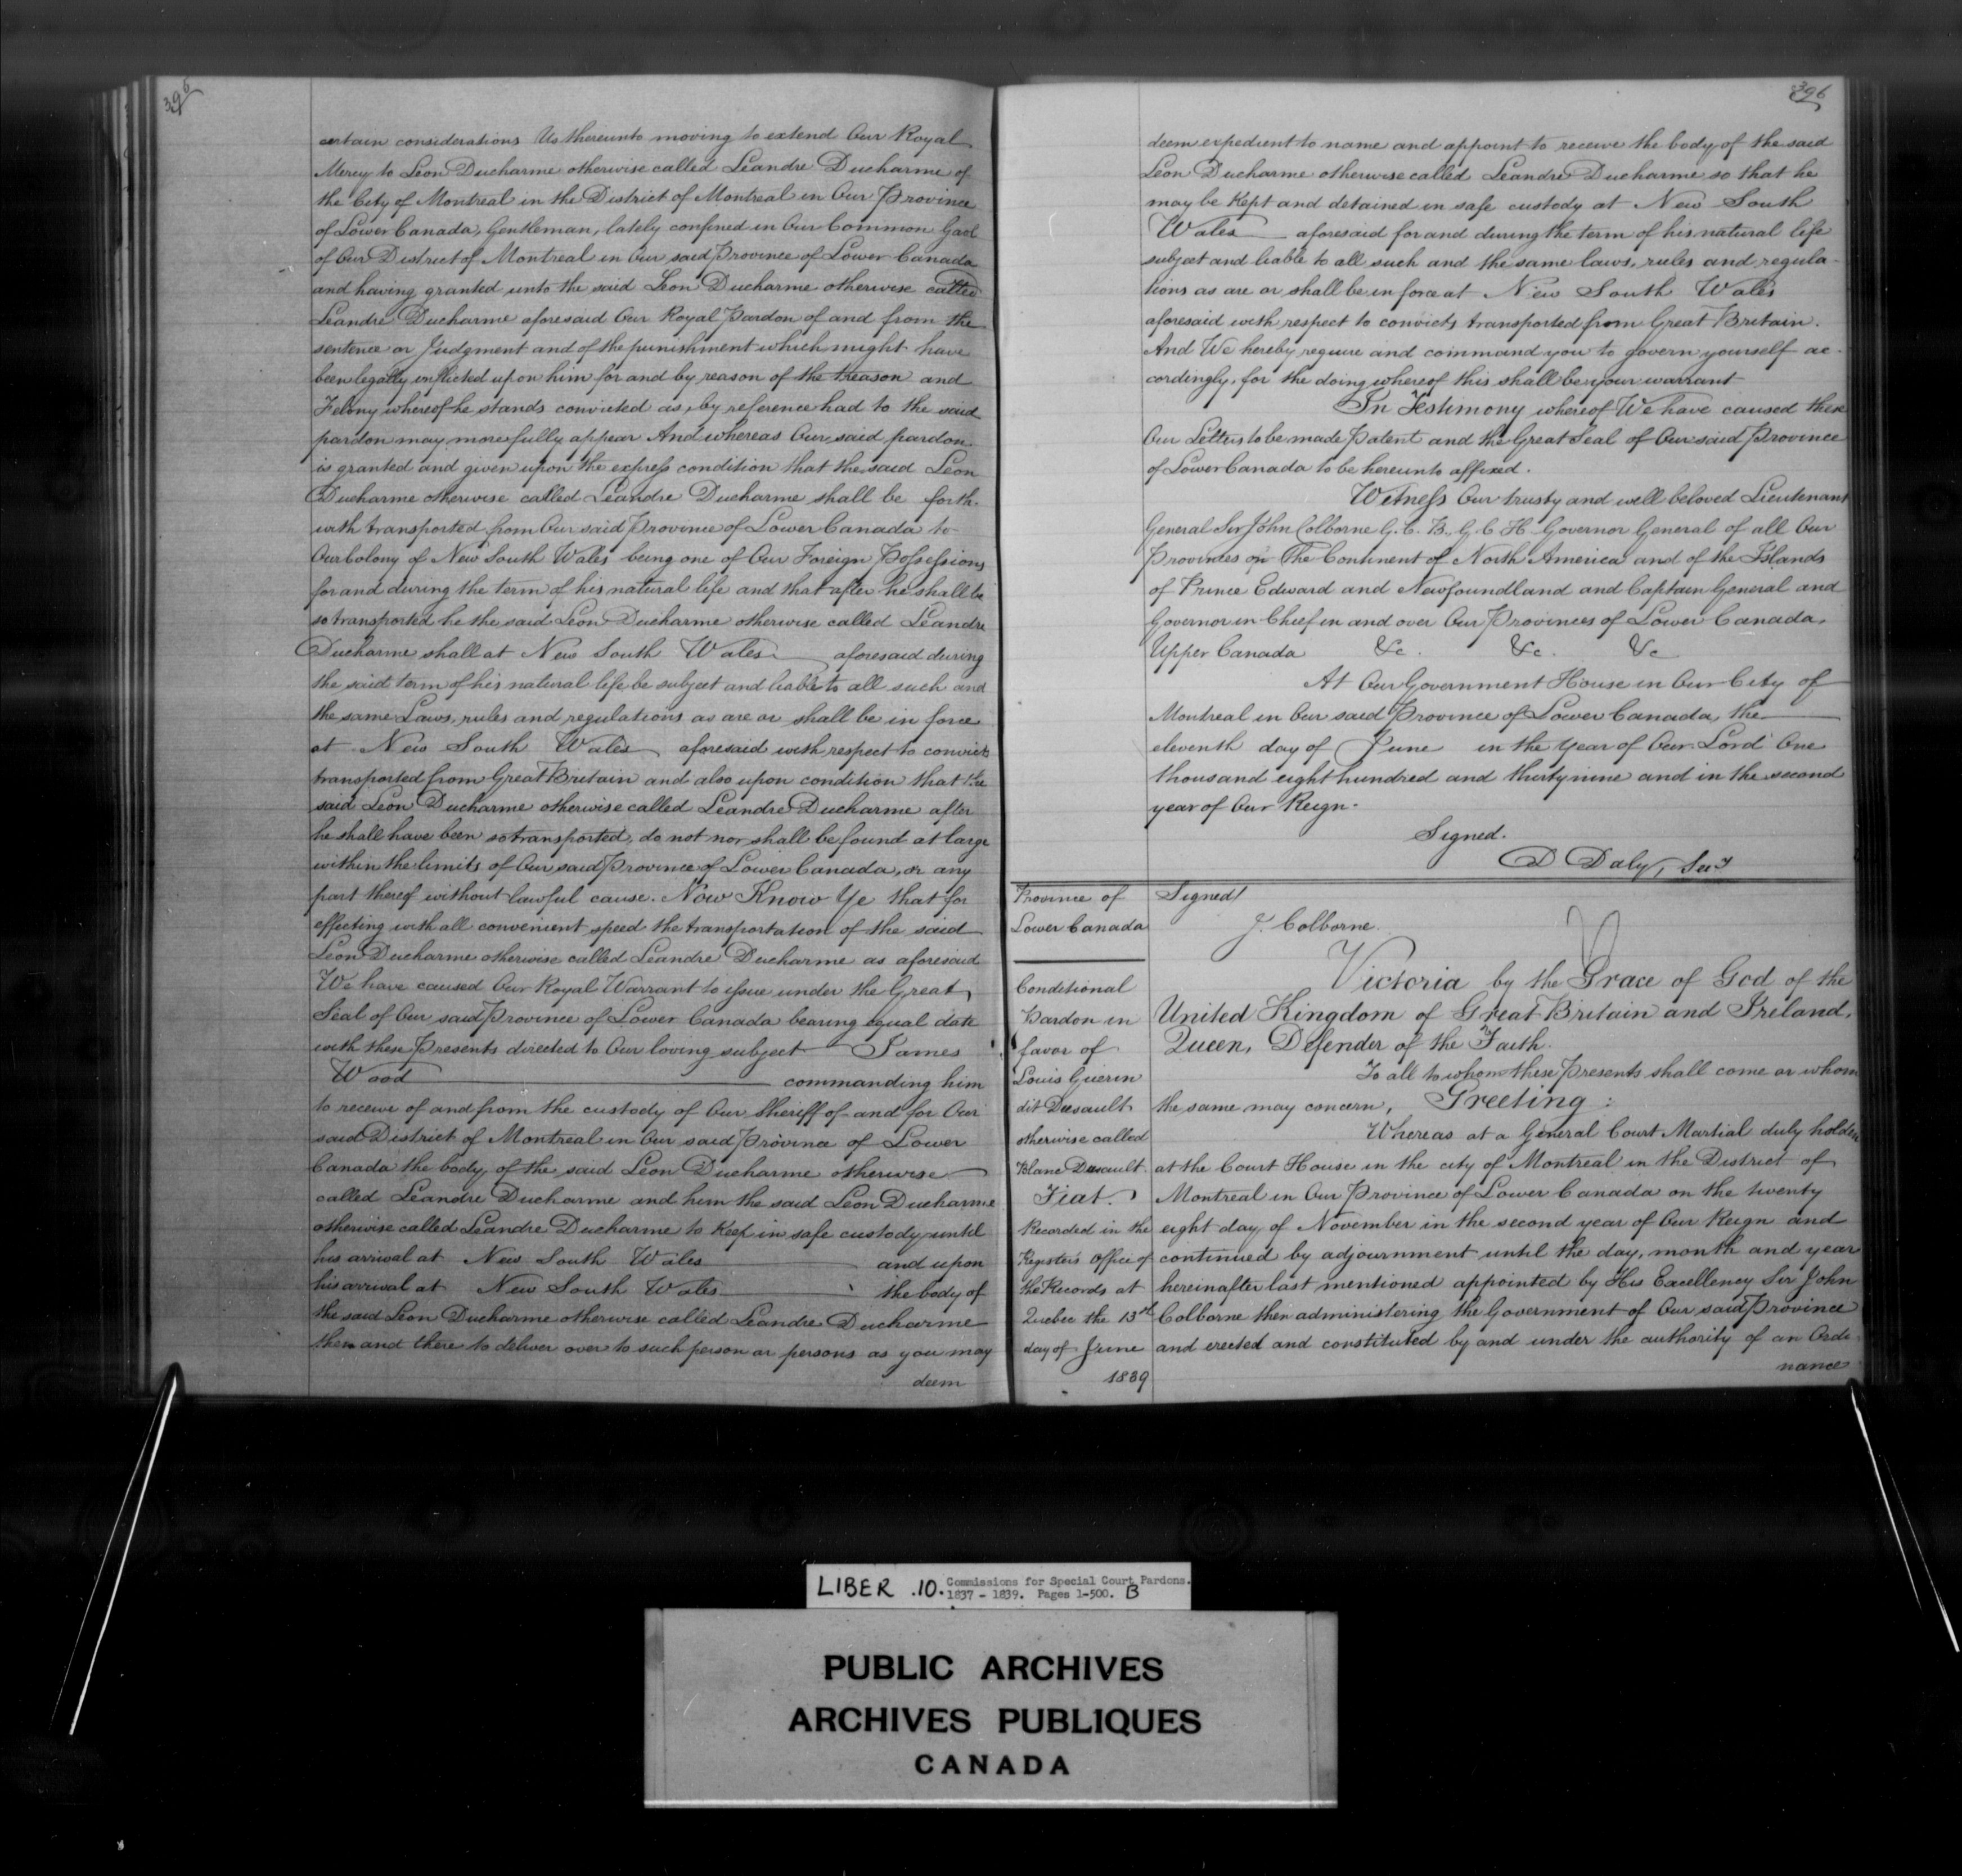 396
certain considerations Us thereunto moving to extend Our Royal
Mercy to Leon Ducharme otherwise called Leandre Ducharme of
the City of Montreal in the District of Montreal in Our Province
of Lower Canada, Gentleman, lately confined in Our Common Gaol
of Our District of Montreal in Our said Province of Lower Canada
and having granted unto the said Leon Ducharme otherwise called
Leandre Ducharme aforesaid Our Royal Pardon of and from the
sentence or Judgment and of the punishment which might have
been legally inflicted upon him for and by reason of the treason and
Felony whereof he stands convicted as, by reference had to the said
pardon may more fully appear And whereas Our said pardon
is granted and given upon the express condition that the said Leon
Ducharme otherwise called Leandre Ducharme shall be forth-
with transported from Our said Province of Lower Canada to
Our Colony of New South Wales being one of Our Foreign Possessions
for and during the term of his natural life and that after he shall be
so transported he the said Leon Ducharme otherwise called Leandre
Ducharme shall at New South Wales aforesaid during
the said term of his natural life be subject and liable to all such and
the same Laws, rules and regulations as are or shall be in force
at New South Wales aforesaid with respect to convicts
transported from Great Britain and also upon condition that the
said Leon Ducharme otherwise called Leandre Ducharme after
he shall have been so transported, do not nor shall be found at large
within the limits of Our said Province of Lower Canada, or any
part thereof without lawful cause. Now Know Ye that for
effecting with all convenient speed the transportation of the said
Leon Ducharme otherwise called Leandre Ducharme as aforesaid
We have caused Our Royal Warrant to issue under the Great
Seal of Our said Province of Lower Canada bearing equal date
with these Presents directed to Our loving subject James
Wood commanding him
to receive of and from the custody of Our Sheriff of and for Our
said District of Montreal in Our said Province of Lower
Canada the body of the said Leon Ducharme otherwise
called Leandre Ducharme and him the said Leon Ducharme
otherwise called Leandre Ducharme to Keep in safe custody until
his arrival at New South Wales and upon
his arrival at New South Wales the body of
the said Leon Ducharme otherwise called Leandre Ducharme
then and there to deliver over to such person or persons as you may
deem
396
deem expedient to name and appoint to receive the body of the said
Leon Ducharme otherwise called Leandre Ducharme so that he
may be Kept and detained in safe custody at New South
Wales aforesaid for and during the term of his natural life
subject and liable to all such and the same laws, rules and regula-
tions as are or shall be in force at New South Wales
aforesaid with respect to convicts transported from Great Britain.
And We hereby require and command you to govern yourself ac-
cordingly, for the doing whereof this shall be your warrant
In Testimony whereof We have caused these
Our Letters to be made Patent and the Great Seal of Our said Province
of Lower Canada to be hereunto affixed.
Witness Our trusty and well beloved Lieutenant
General Sir John Colborne G. C. B., G. C. H. Governor General of all Our
Provinces on The Continent of North America and of the Islands
of Prince Edward and Newfoundland and Captain General and
Governor in Chief in and over Our Provinces of Lower Canada,
Upper Canada &c. &c. &c
At Our Government House in Our City of
Montreal in Our said Province of Lower Canada, the
eleventh day of June in the Year of Our Lord One
thousand eight hundred and thirty nine and in the second
year of Our Reign.
Signed.
D Daly, Secy
Province of
Lower Canada
Conditional
Pardon in
favor of
Louis Guerin
dit Dusault
otherwise called
Blanc Dusault
Fiat.
Recorded in the
Registers Office of
the Records at
Quebec the 13th
day of June
1839
Signed
J. Colborne.
Victoria by the Grace of God of the
United Kingdom of Great Britain and Ireland,
Queen, Defender of the Faith.
To all to whom these Presents shall come or whom
the same may concern, Greeting:
Whereas at a General Court Martial duly holden
at the Court House in the city of Montreal in the District of
Montreal in Our Province of Lower Canada on the twenty
eight day of November in the second year of Our Reign and
continued by adjournment until the day, month and year
hereinafter last mentioned appointed by His Excellency Sir John
Colborne then administering the Government of Our said Province
and erected and constituted by and under the authority of an Ordi
nance
LIBER .10. Commissions for Special Court Pardons.
1837 - 1839. Pages 1-500. B
PUBLIC ARCHIVES
ARCHIVES PUBLIQUES
CANADA